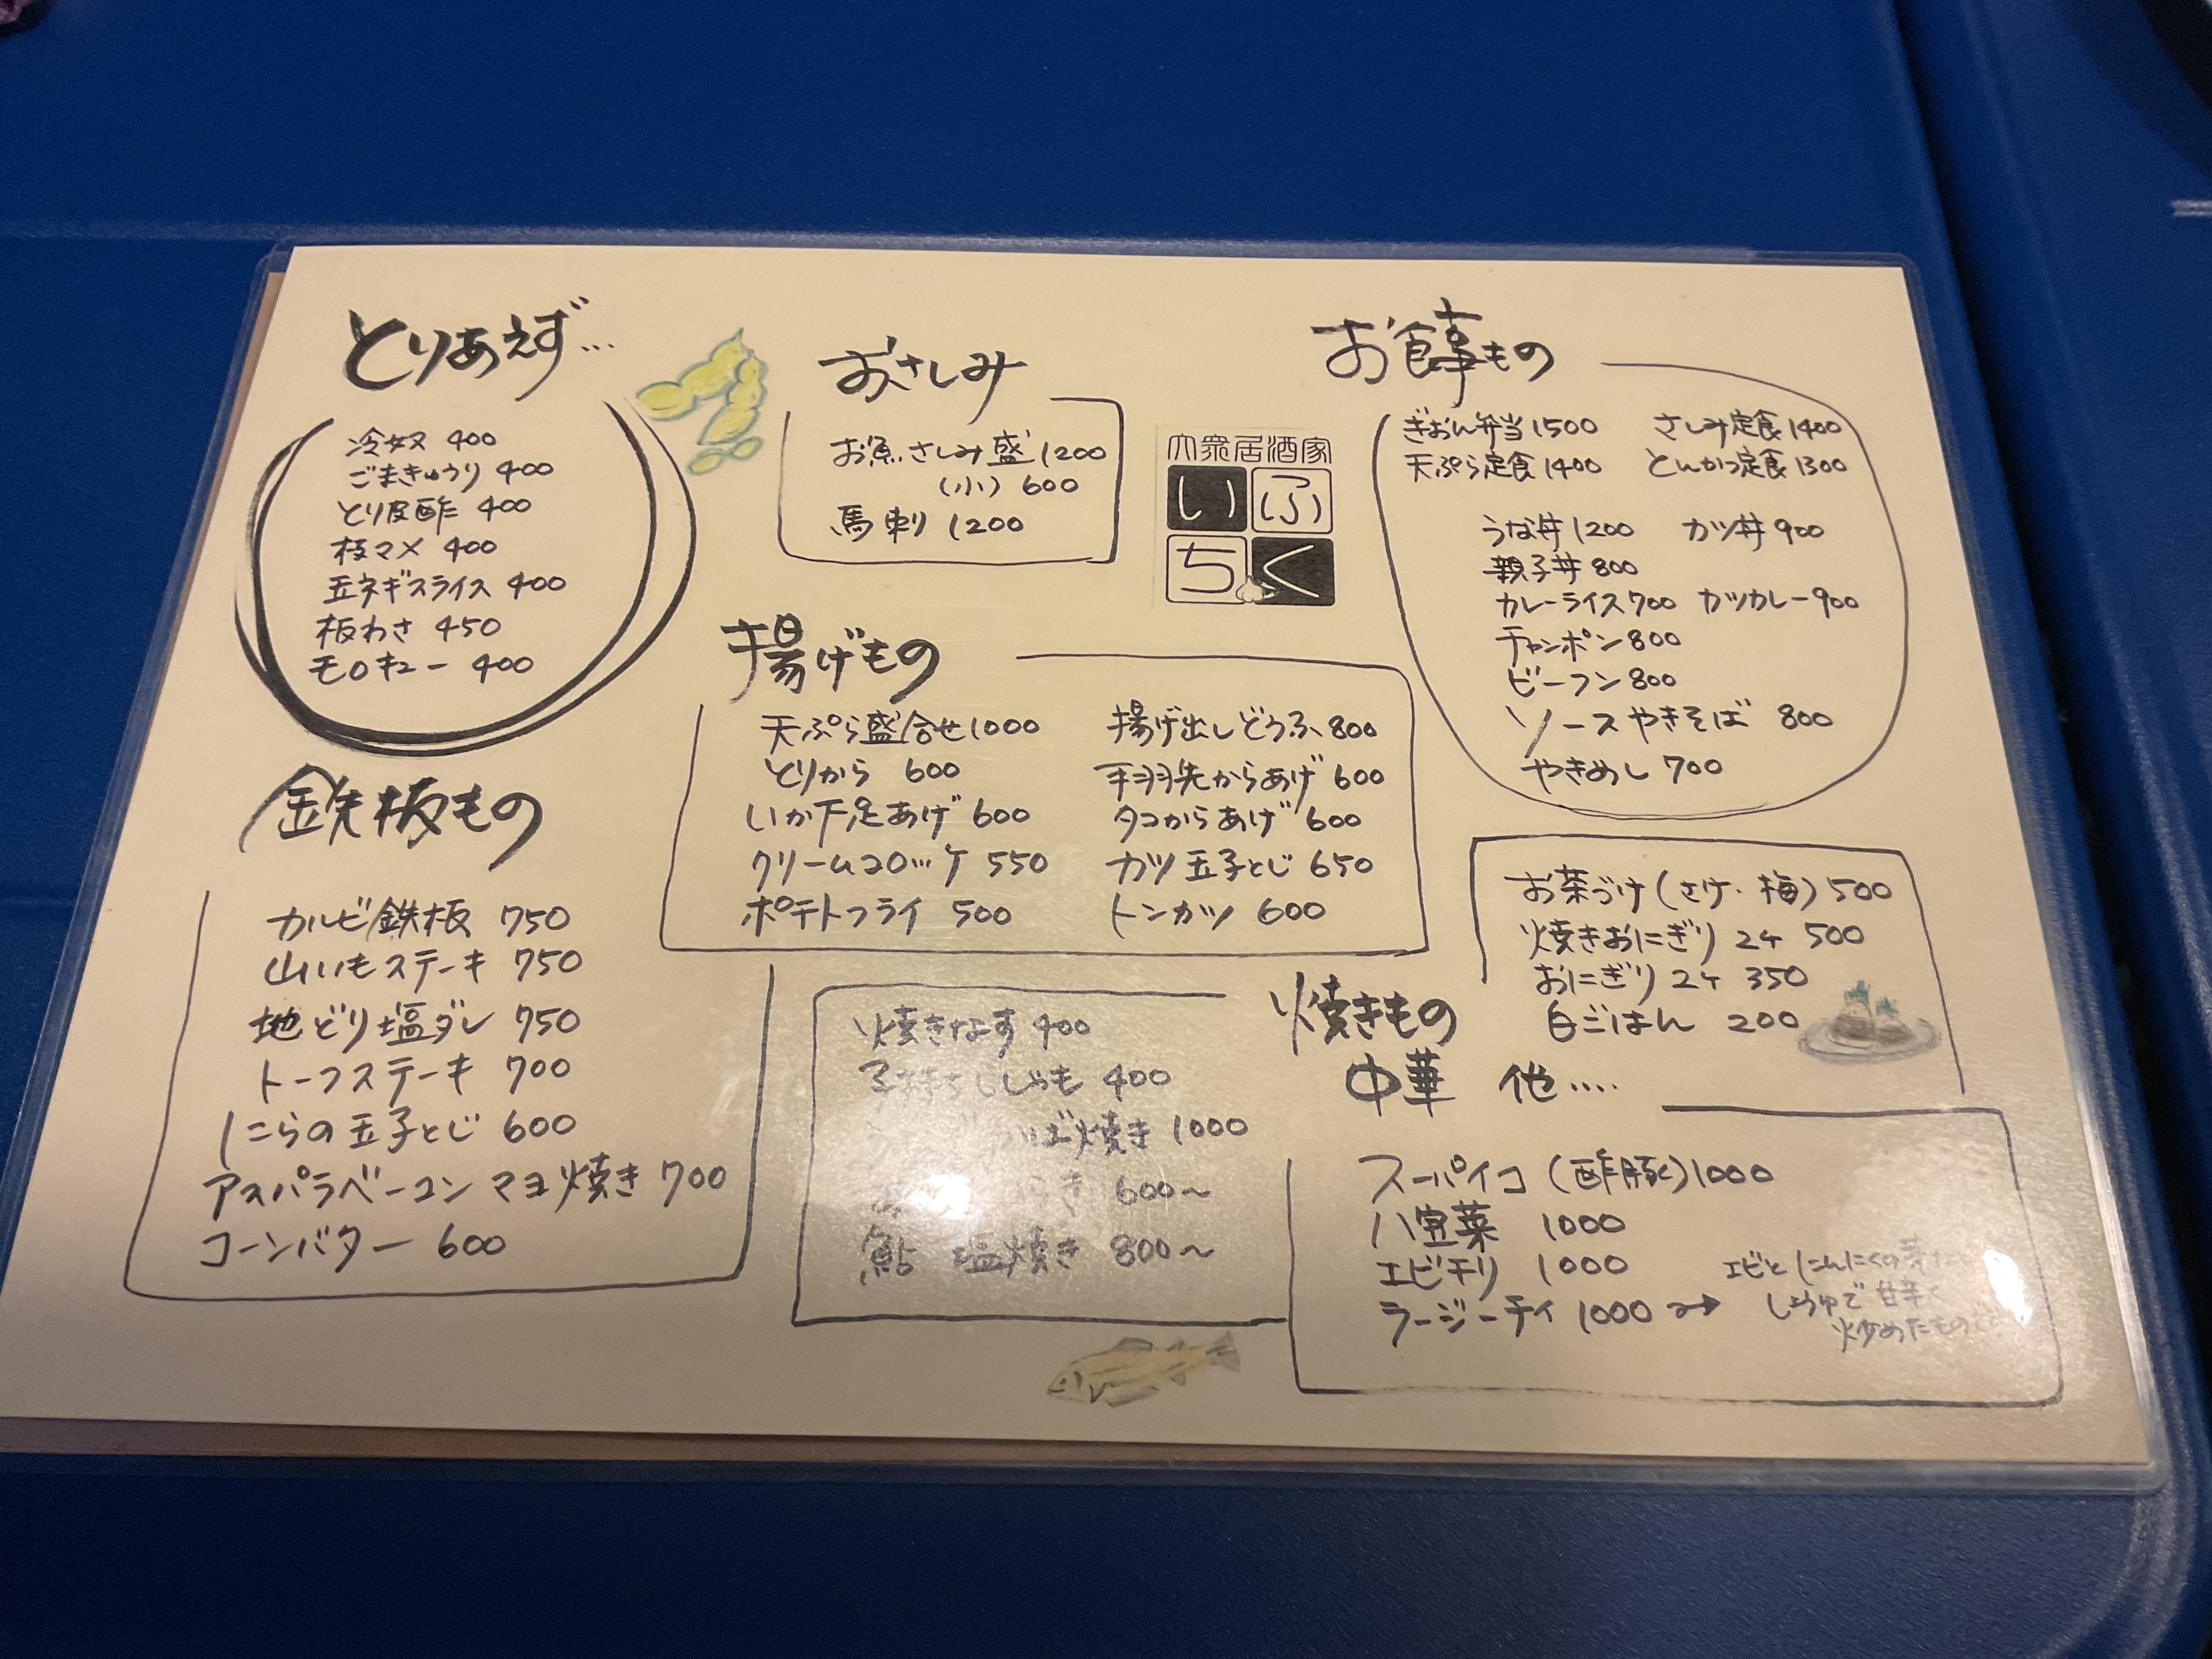 とりあえず…
冷奴 400
ごまきゅうり 400
とり皮酢 400
枝マメ 400
玉ネギスライス 400
板わさ 450
モロキュー 400
おさしみ
お魚さしみ盛 1200
(小) 600
馬刺 1200
大衆居酒家
いふ
ちく
お食事もの
ぎおん弁当 1500 さしみ定食 1400
天ぷら定食 1400 とんかつ定食 1300
うな丼 1200 カツ丼 900
親子丼 800
カレーライス 700 カツカレー 900
チャンポン 800
ビーフン 800
ソースやきそば 800
やきめし 700
揚げもの
天ぷら盛合せ 1000 揚げ出しどうふ 800
とりから 600 手羽先からあげ 600
いか下足あげ 600 タコからあげ 600
クリームコロッケ 550 カツ玉子とじ 650
ポテトフライ 500 トンカツ 600
鉄板もの
カルビ鉄板 750
山いもステーキ 750
地どり塩ダレ 750
トーフステーキ 700
にらの玉子とじ 600
アスパラベーコンマヨ焼き 700
コーンバター 600
お茶づけ(さけ・梅) 500
焼きおにぎり 2ケ 500
おにぎり 2ケ 350
白ごはん 200
焼きもの
中華 他‥‥
焼きなす 400
子持ちししゃも 400
焼き 1000
き 600〜
鮎 塩焼き 800〜
スーパイコ(酢豚) 1000
八宝菜 1000
エビチリ 1000
ラージーチイ 1000 → エビとにんにくの芽
しょうゆで甘辛く
炒めたもの